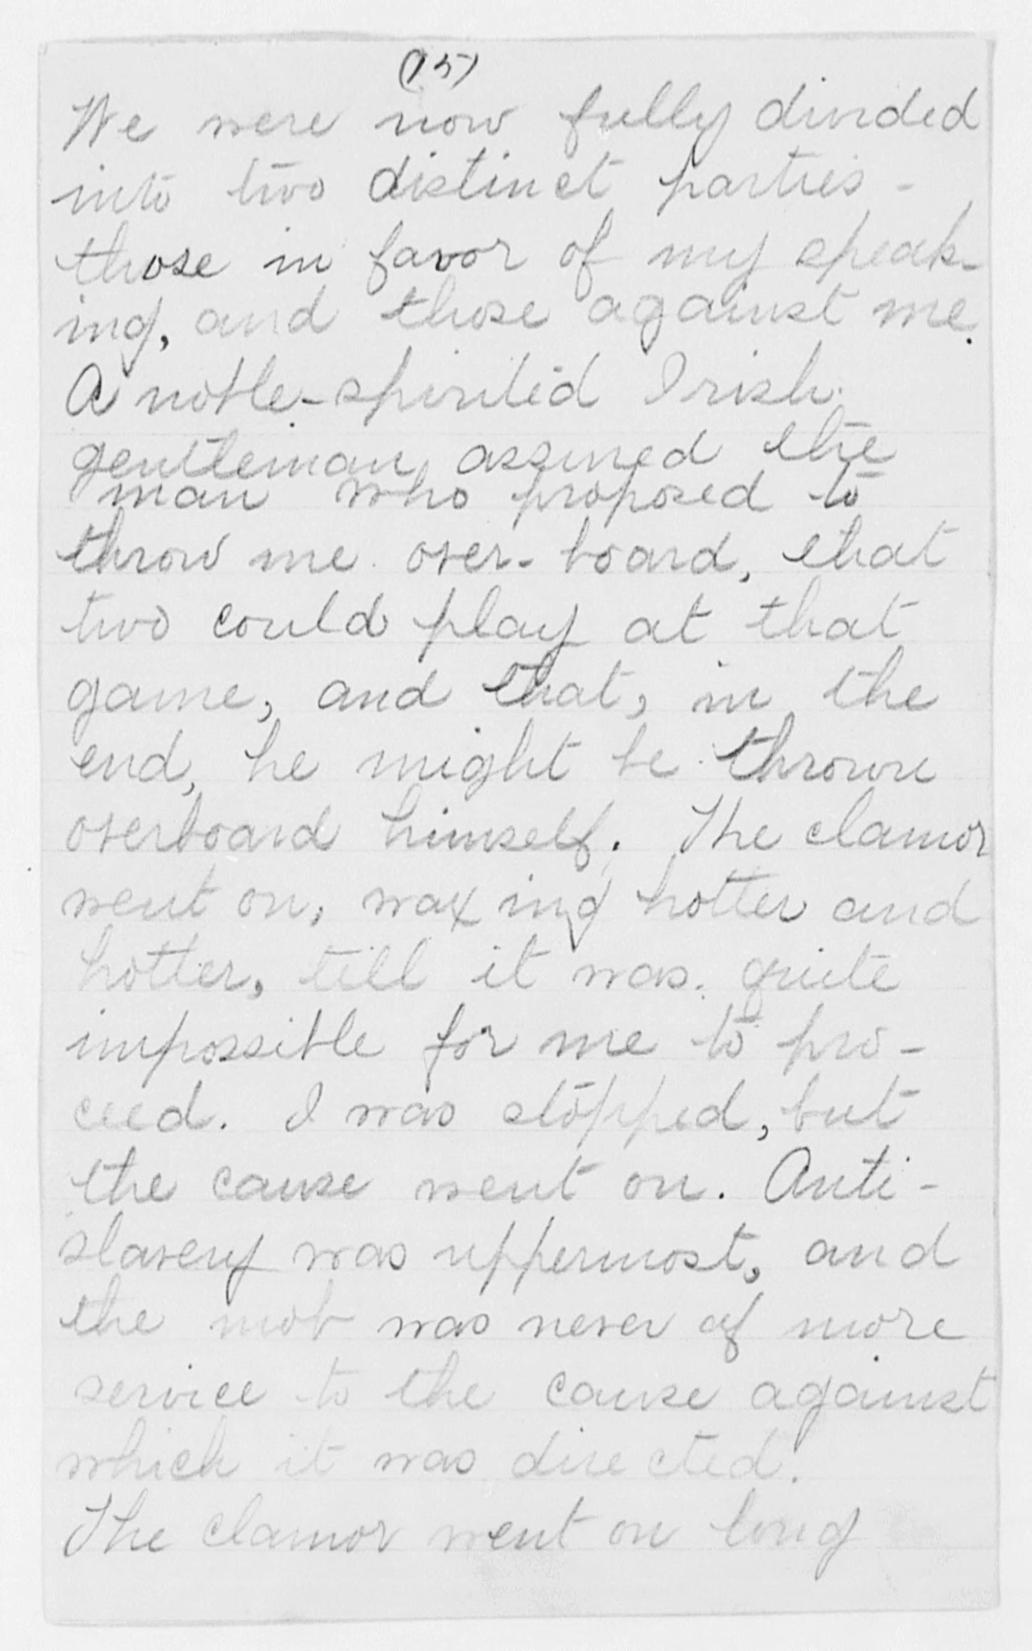 (15)
We were now fully divided
into two distinct parties -
those in favor of my speak-
ing, and those against me.
A noble-spirited Irish
gentleman assured the
man who proposed to
throw me over-board, that
two could play at that
game, and that, in the
end, he might be thrown
overboard himself. The clamor
went on, waxing hotter and
hotter, till it was quite
impossible for me to pro-
ceed. I was stopped, but
the cause went on. Anti-
slavery was uppermost, and
the mob was never of more
service to the cause against
which it was directed.
The clamor went on long